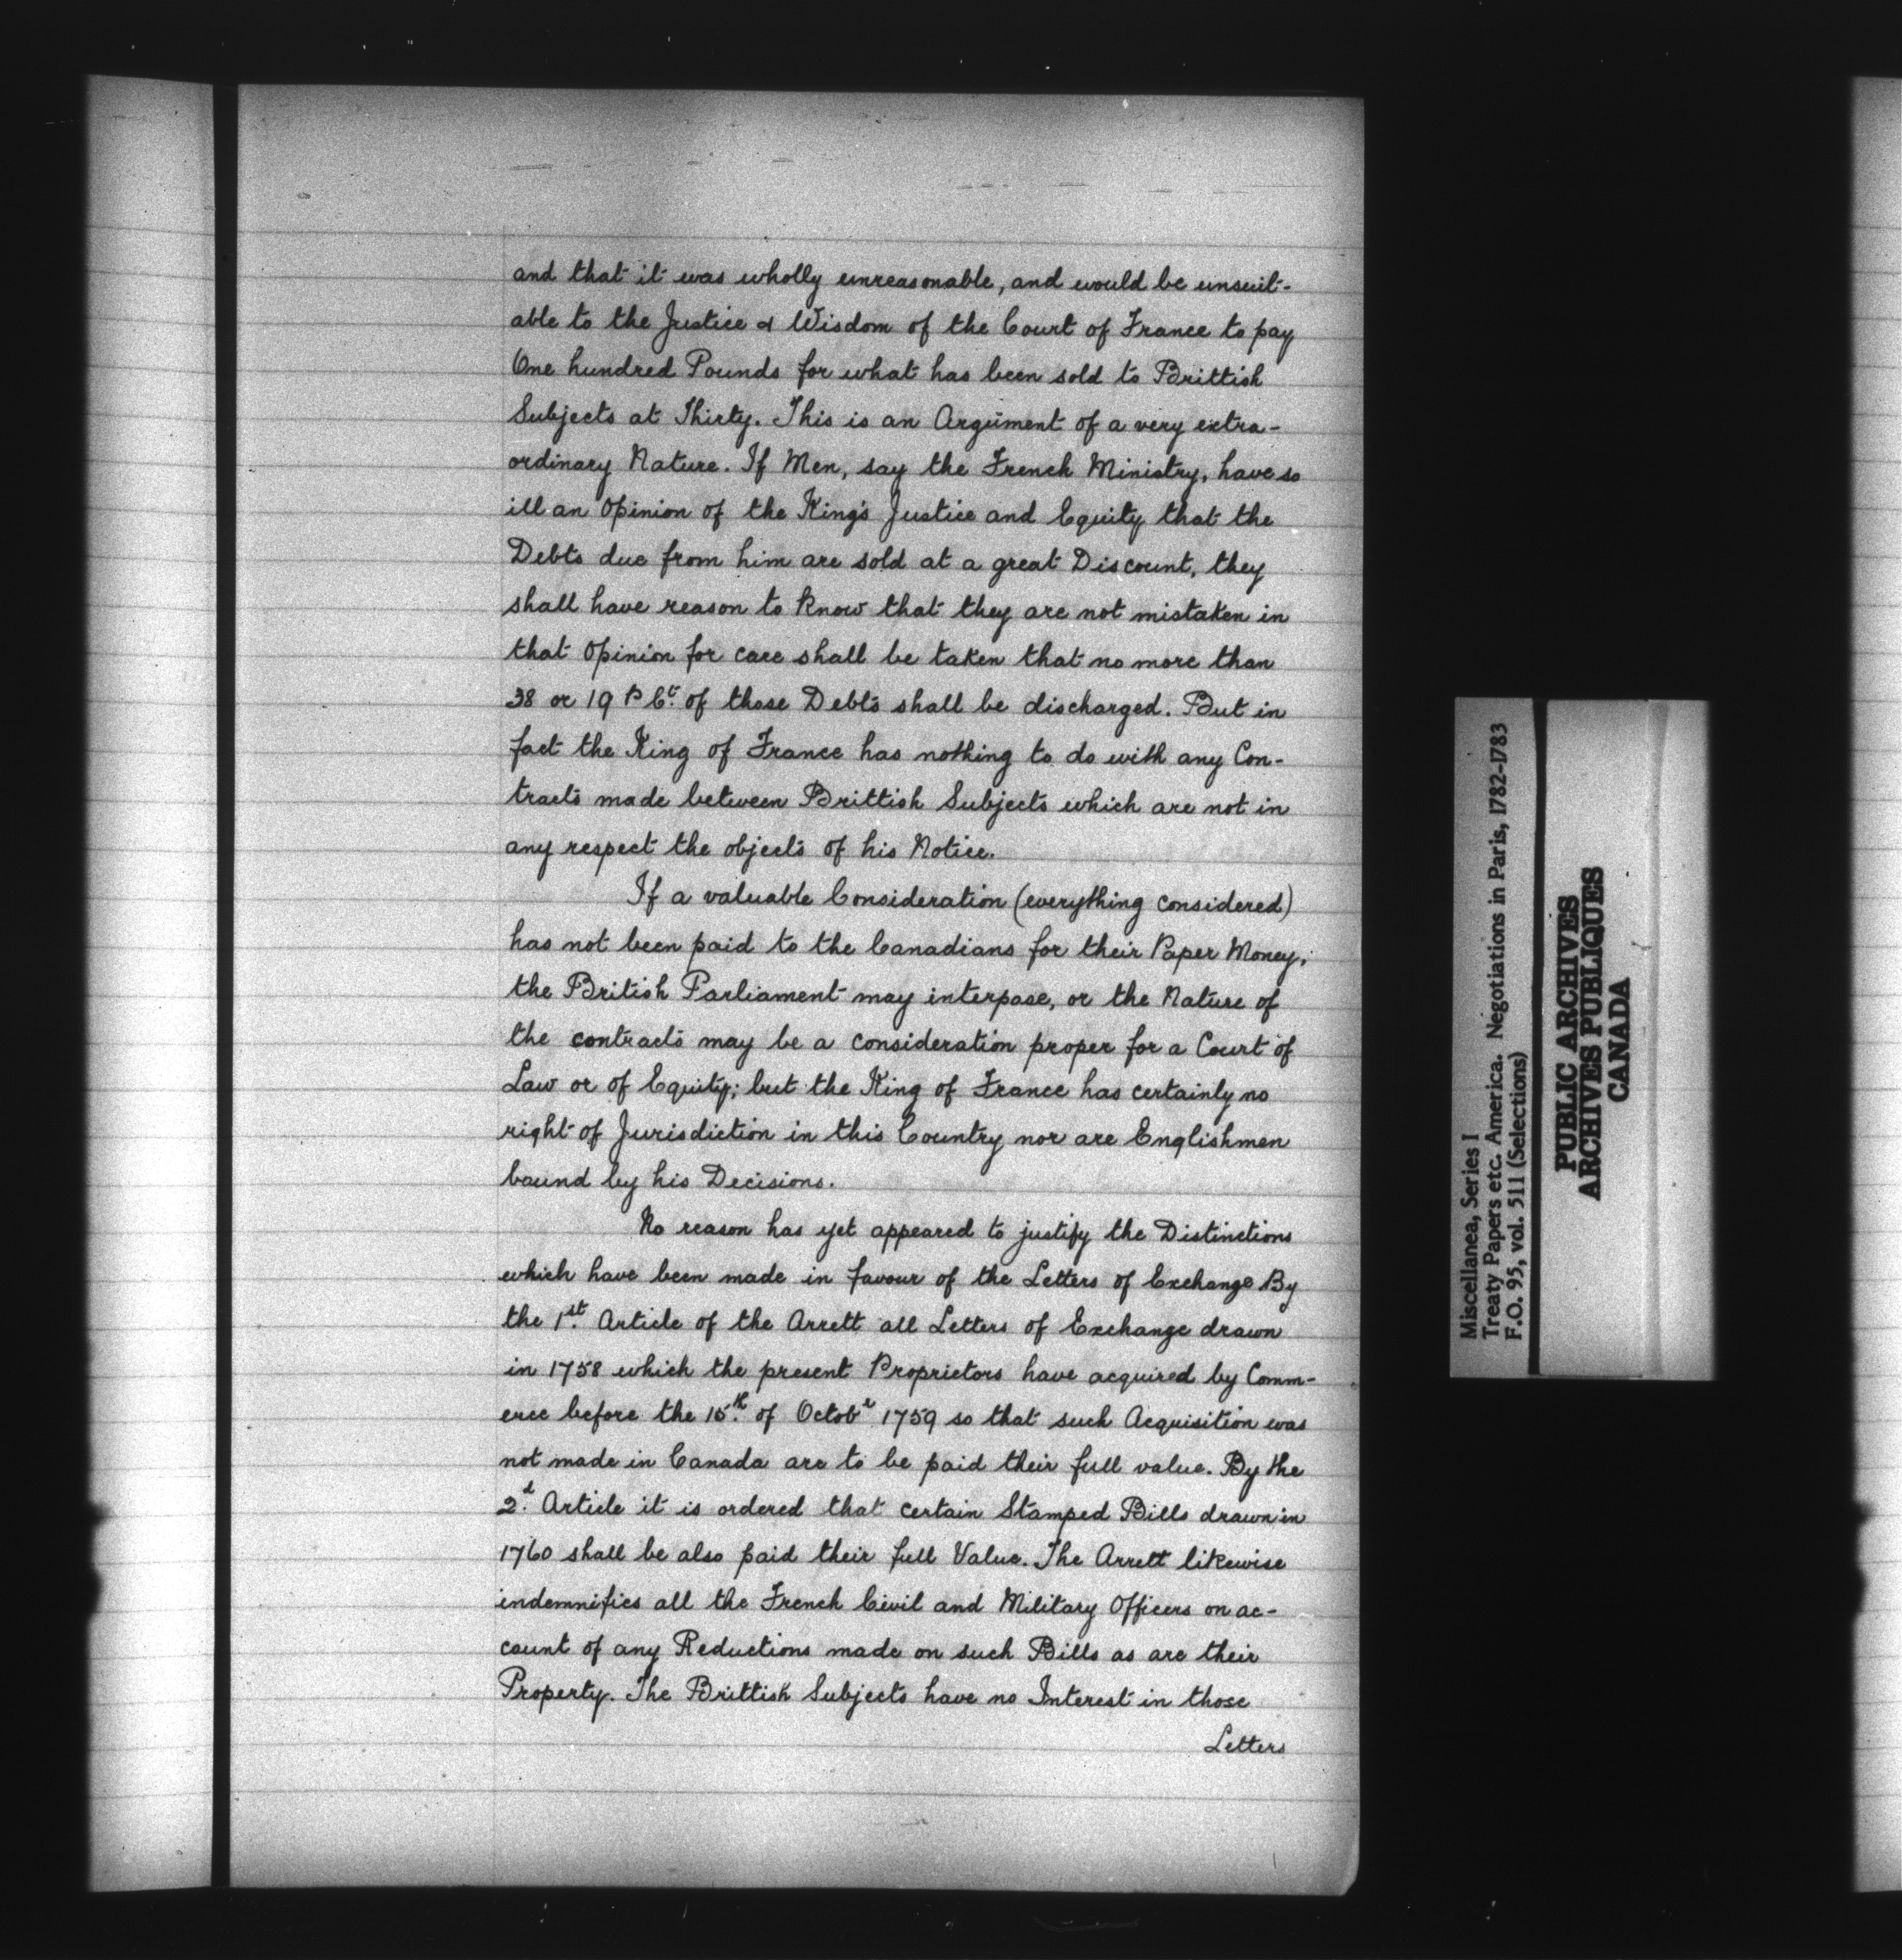 and that it was wholly unreasonable, and would be unsuit-
able to the Justice & Wisdom of the Court of France to pay
One hundred Pounds for what has been sold to Brittish
Subjects at Thirty. This is an Argument of a very extra-
ordinary Nature. If Men, say the French Ministry, have so
ill an Opinion of the King's Justice and Equity that the
Debts due from him are sold at a great Discount, they
shall have reason to know that they are not mistaken in
that Opinion for care shall be taken that no more than
38 or 19 P Ct. of those Debts shall be discharged. But in
fact the King of France has nothing to do with any Con-
tracts made between Brittish Subjects which are not in
any respect the objects of his Notice.
If a valuable Consideration (everything considered)
has not been paid to the Canadians for their Paper Money,
the British Parliament may interpose, or the Nature of
the contracts may be a consideration proper for a Court of
Law or of Equity; but the King of France has certainly no
right of Jurisdiction in this Country nor are Englishmen
bound by his Decisions.
No reason has yet appeared to justify the Distinctions
which have been made in favour of the Letters of Exchange By
the 1st. Article of the Arrett all Letters of Exchange drawn
in 1758 which the present Proprietors have acquired by Comm-
erce before the 15th. of Octobr 1759 so that such Acquisition was
not made in Canada are to be paid their full value. By the
2d. Article it is ordered that certain Stamped Bills drawn in
1760 shall be also paid their full Value. The Arrett likewise
indemnifies all the French Civil and Military Officers on ac-
count of any Reductions made on such Bills as are their
Property. The Brittish Subjects have no Interest in those
Letters
Miscellanea, Series I
Treaty Papers etc. America. Negotiations in Paris, 1782-1783
F.O. 95, vol. 511 (Selections)
PUBLIC ARCHIVES
ARCHIVES PUBLIQUES
CANADA